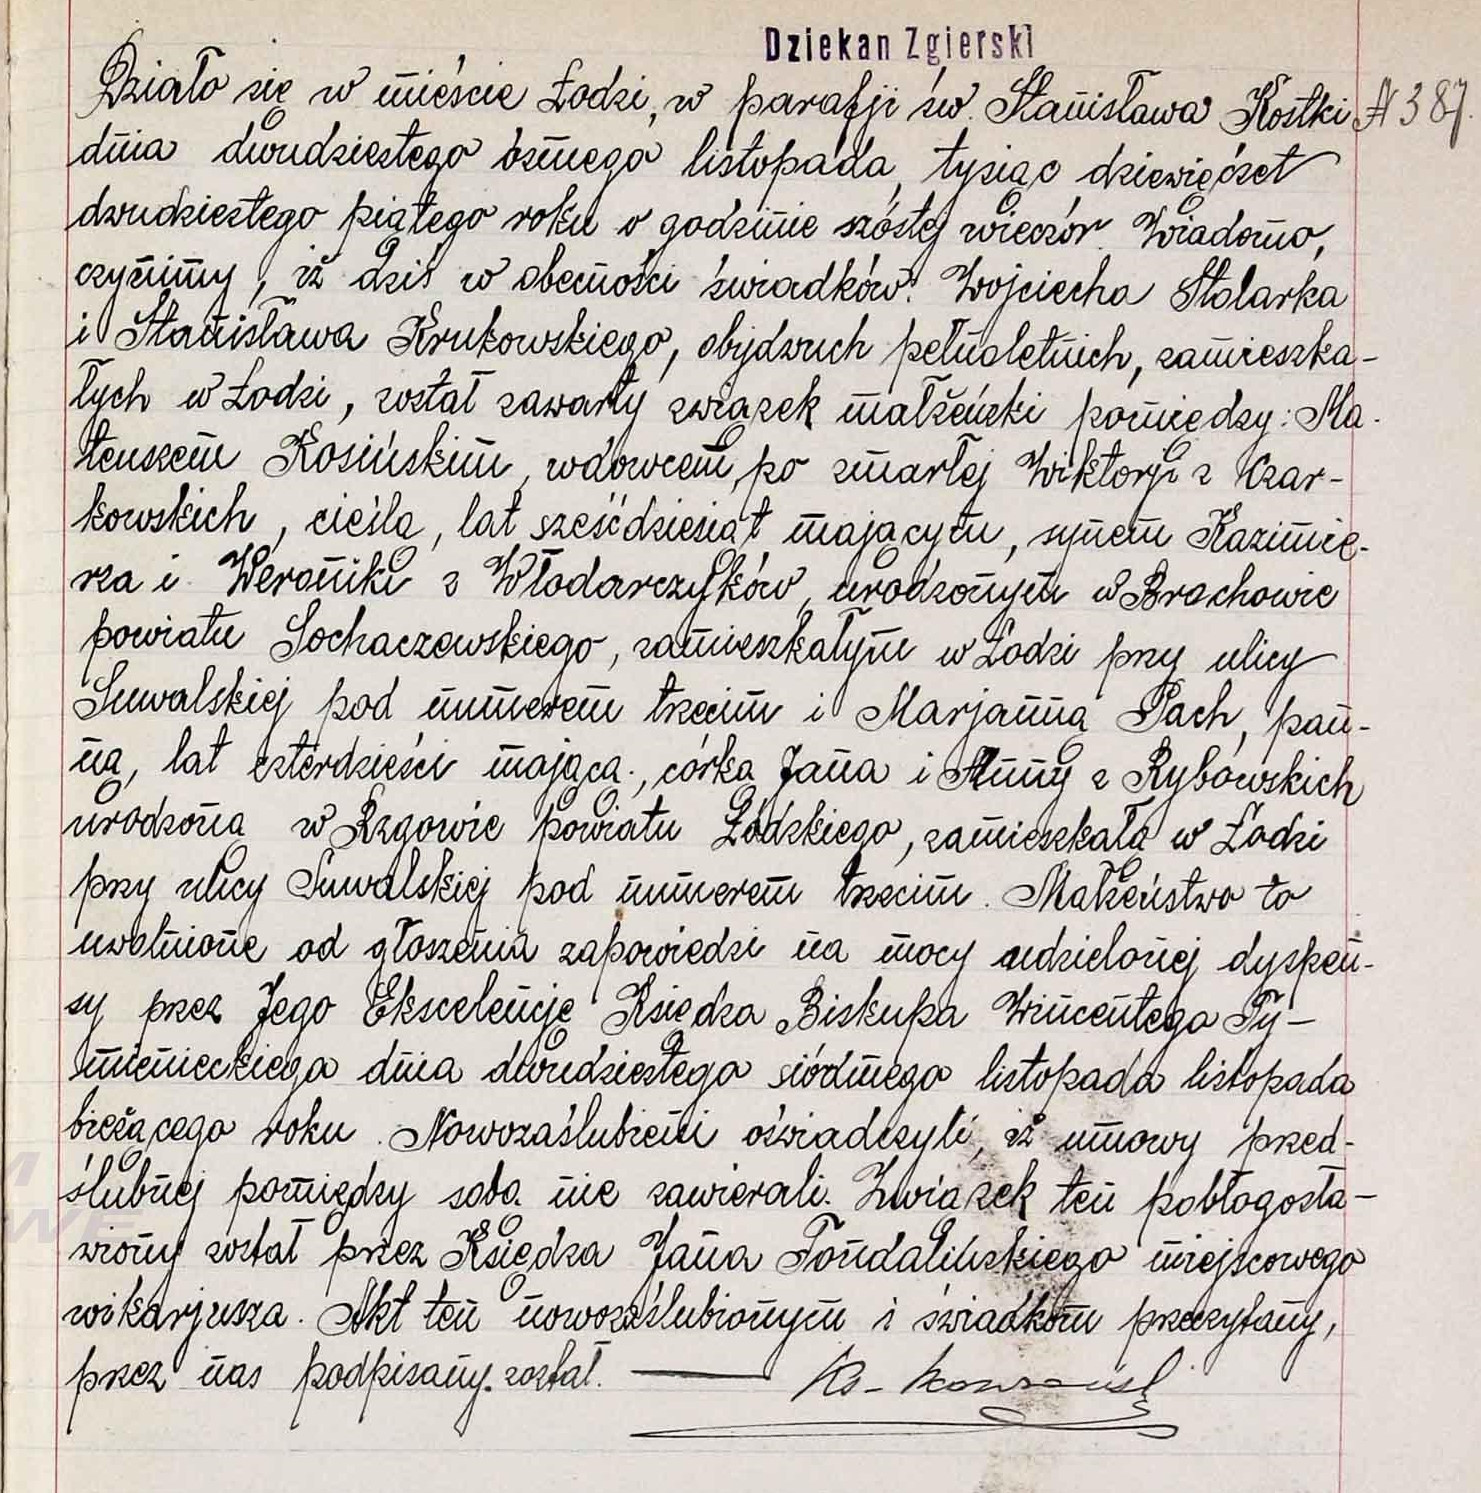 Dziekan Zgierski
Działo się w mieście Łodzi, w parafji św. Stanisława Kostki № 387.
dnia dwudziestego ósmego listopada, tysiąc dziewięćset
dwudziestego piątego roku o godzinie szóstej wieczór. Wiadomo,
czynimy, iż dziś w obecności świadków: Wojciecha Stolarka
i Stanisława Krukowskiego, obydwuch pełnoletnich, zamieszka-
łych w Łodzi, został zawarty związek małżeński pomiędzy: Ma-
teuszem Kosińskim, wdowcem, po zmarłej Wiktorji z Czar-
kowskich, cieślą, lat sześćdziesiąt mającym, synem Kazimie-
rza i Weroniki z Włodarczyków, urodzonym w Brochowie
powiatu Sochaczewskiego, zamieszkałym w Łodzi przy ulicy
Suwalskiej pod numerem trzecim i Marjanną Pach, pan-
ną, lat czterdzieści mającą, córką Jana i Anny z Rybowskich
urodzoną w Rzgowie powiatu Łódzkiego, zamieszkałą w Łodzi
przy ulicy Suwalskiej pod numerem trzecim. Małżeństwo to
uwolnione od głoszenia zapowiedzi na mocy udzielonej dyspen-
sy przez Jego Ekscelencję Księdza Biskupa Wincentego Ty-
mienieckiego dnia dwudziestego siódmego listopada listopada
bieżącego roku. Nowozaślubieni oświadczyli, iż umowy przed-
ślubnej pomiędzy sobą nie zawierali. Związek ten pobłogosła-
wiony został przez Księdza Jana Fondalińskiego miejscowego
wikarjusza. Akt ten nowozaślubionym i świadkom przeczytany,
przez nas podpisany został. Ks.